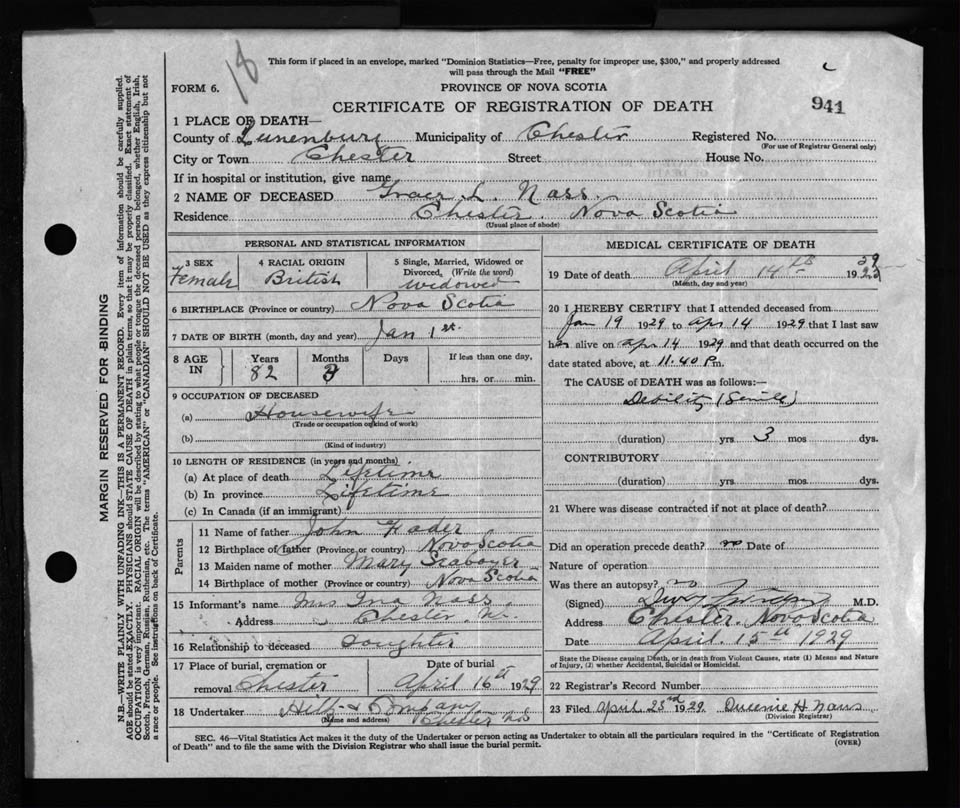 18
This form if placed in an envelope, marked "Dominion Statistics—Free, penalty for improper use, $300," and properly addressed
will pass through the Mail "FREE"
FORM 6.
PROVINCE OF NOVA SCOTIA
CERTIFICATE OF REGISTRATION OF DEATH
941
1 PLACE OF DEATH—
County of Lunenburg Municipality of Chester Registered No.
(For use of Registrar General only)
City or Town Chester Street House No.
If in hospital or institution, give name
2 NAME OF DECEASED Grace L. Nass.
Residence Chester. Nova Scotia
(Usual place of abode)
PERSONAL AND STATISTICAL INFORMATION
3 SEX Female
4 RACIAL ORIGIN British
5 Single, Married, Widowed or Divorced, (Write the word) widowed
6 BIRTHPLACE (Province or country) Nova Scotia
7 DATE OF BIRTH (month, day and year) Jan 1st.
8 AGE IN Years 82 Months 3 Days If less than one day, hrs. or min.
9 OCCUPATION OF DECEASED
(a) Housewife
(Trade or occupation or kind of work)
(b)
(Kind of industry)
10 LENGTH OF RESIDENCE (in years and months)
(a) At place of death Lifetime
(b) In province Lifetime
(c) In Canada (if an immigrant)
Parents
11 Name of father John Hader
12 Birthplace of father (Province or country) Nova Scotia
13 Maiden name of mother Mary
14 Birthplace of mother (Province or country) Nova Scotia
15 Informant's name Mrs Ina Nass
Address Chester, N.S.
16 Relationship to deceased Daughter
17 Place of burial, cremation or removal Chester
Date of burial April 16th 1929
18 Undertaker & Company
(Name and address) Chester N.S
MEDICAL CERTIFICATE OF DEATH
19 Date of death April 14th 1929
(Month, day and year)
20 I HEREBY CERTIFY that I attended deceased from
Jan 19 1929 to Apr 14 1929 that I last saw
her alive on Apr 14 1929 and that death occurred on the
date stated above, at 11.40 P.m.
The CAUSE OF DEATH was as follows:—
Debility (Senile)
(duration) yrs 3 mos dys.
CONTRIBUTORY
(duration) yrs. mos. dys.
21 Where was disease contracted if not at place of death?
Did an operation precede death? no Date of
Nature of operation
Was there an autopsy? no
(Signed) M.D.
Address Chester. Nova Scotia
Date April. 15th 1929
State the Disease causing Death, or in death from Violent Causes, state (1) Means and Nature
of Injury, (2) whether Accidental, Suicidal or Homicidal.
22 Registrar's Record Number
23 Filed April 23rd 1929. Queenie H Nauss
(Division Registrar)
SEC. 46—Vital Statistics Act makes it the duty of the Undertaker or person acting as Undertaker to obtain all the particulars required in the "Certificate of Registration
of Death" and to file the same with the Division Registrar who shall issue the burial permit.
(OVER)
MARGIN RESERVED FOR BINDING
N.B.—WRITE PLAINLY WITH UNFADING INK—THIS IS A PERMANENT RECORD. Every item of information should be carefully supplied.
AGE should be stated EXACTLY. PHYSICIANS should STATE CAUSE OF DEATH in plain terms, so that it may be properly classified. Exact statement of
OCCUPATION is very important. RACIAL ORIGIN will be described by stating to what people or tongue the deceased person belonged, whether English, Irish,
Scotch, French, German, Russian, Ruthenian, etc. The terms "AMERICAN" or "CANADIAN" SHOULD NOT BE USED as they express citizenship but not
a race or people. See instructions on back of Certificate.